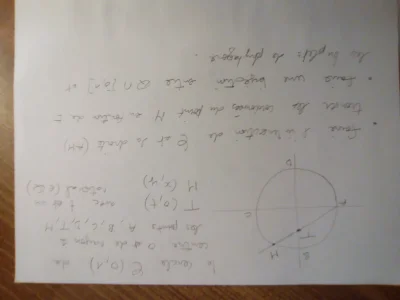 le cercle C (0,1) de
centre O et de rayon 1
les points A, B, C, D, T, M
T (0,t) avec t
M (x,y)
A
B
C
D
T
M
• Faire l'intersection de C et la droite (AM)
trouver les coordonnées du point M en fonction de t
• faire une bijection entre Q ∩ et
les triplets de pythagore.